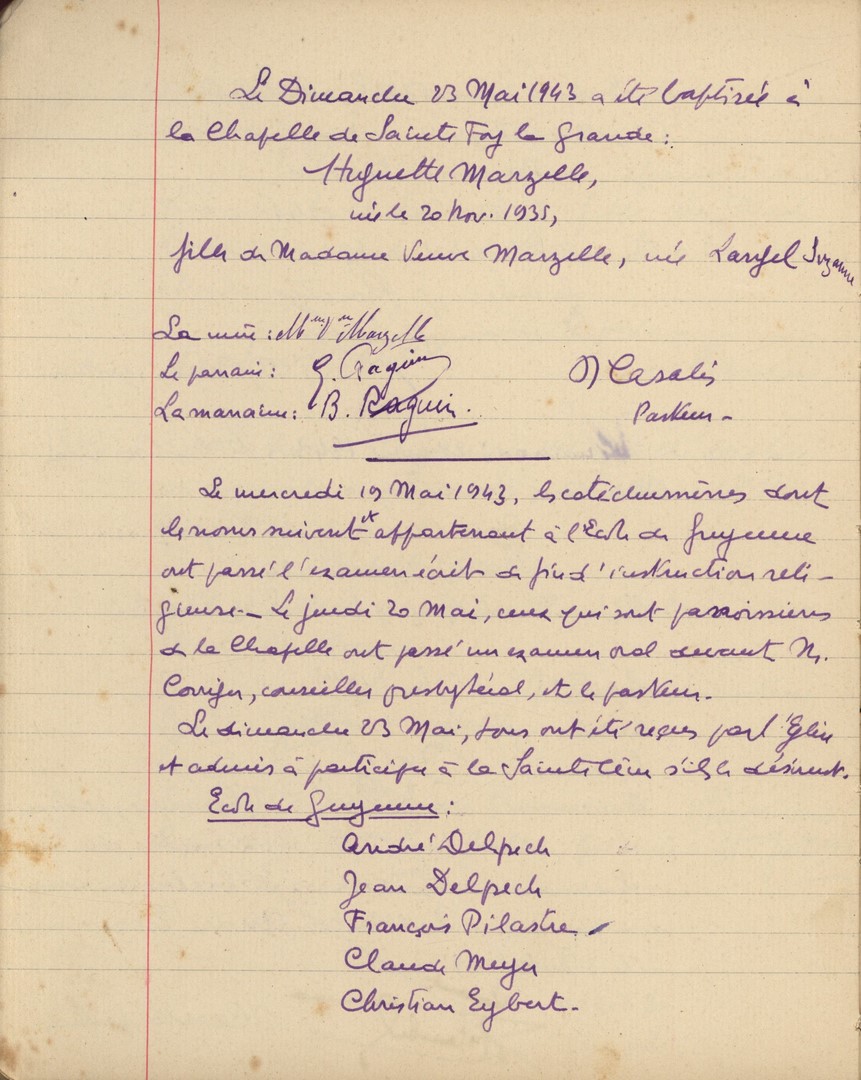 Le Dimanche 23 Mai 1943 a été baptisée à
la Chapelle de Sainte Foy la Grande :
Huguette Marzelle,
née le 20 Nov. 1935,
fille de Madame Veuve Marzelle, née Suzanne
La mère : Mme Vve Marzelle
Le parrain : G. Raguin
La marraine : B. Raguin.
Casalis
Pasteur -
Le mercredi 19 Mai 1943, les catéchumènes dont
les noms suivent et appartenant à l'Ecole de Guyenne
ont passé l'examen écrit de fin d'instruction reli-
gieuse. - Le jeudi 20 Mai, ceux qui sont paroissiens
de la Chapelle ont passé un examen oral devant M.
conseiller presbytéral, et le pasteur.
Le dimanche 23 Mai, tous ont été reçus par l'Eglise
et admis à participer à la Sainte Cène s'ils le désirent.
Ecole de Guyenne :
André Delpech
Jean Delpech
François Pilastre
Claude Meyer
Christian Eybert -